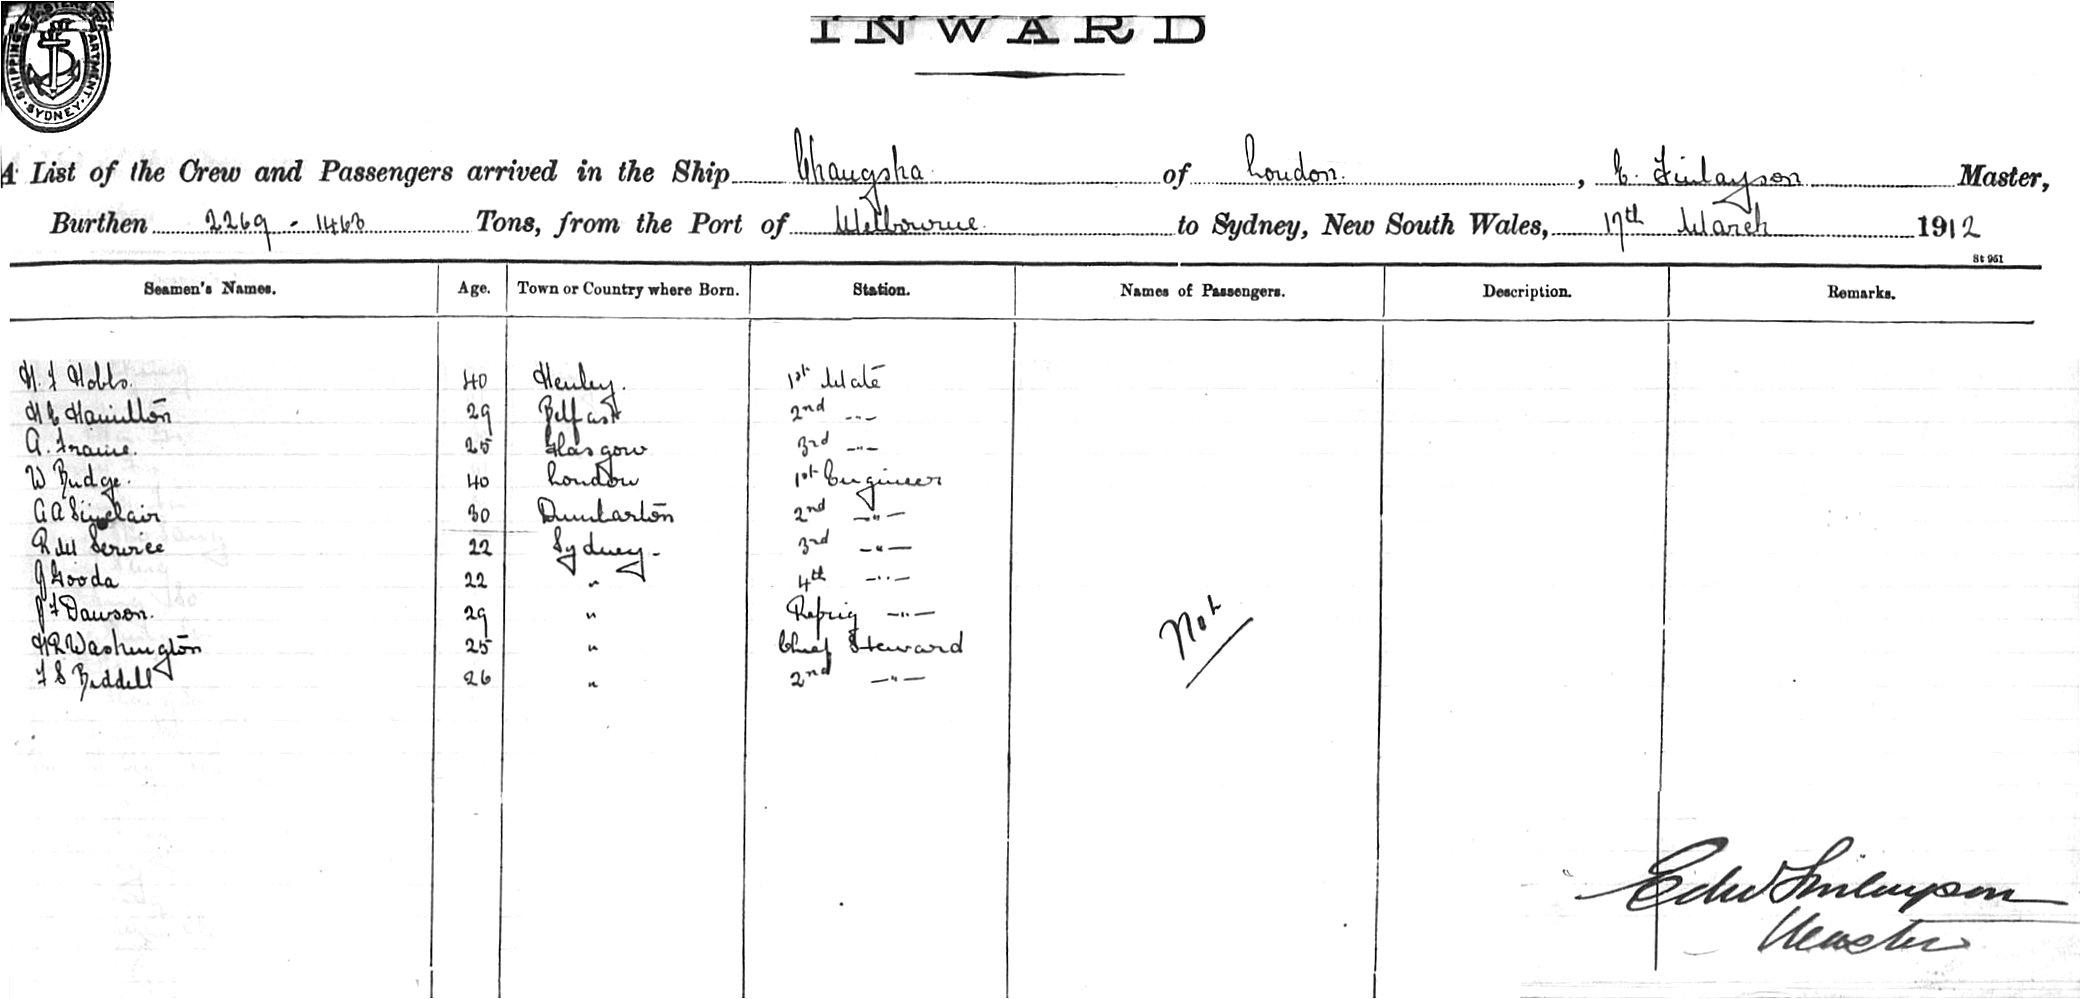 SHIPPING DEPARTMENT SYDNEY
INWARD
A List of the Crew and Passengers arrived in the Ship Changsha of London, E. Finlayson Master,
Burthen 2269 - 1463 Tons, from the Port of Melbourne to Sydney, New South Wales, 17th March 1912
St 951
Seamen's Names. Age. Town or Country where Born. Station. Names of Passengers. Description. Remarks.
H. F Hobbs. 40 Henley. 1st Mate
H E Hamilton 29 Belfast 2nd -"-
A. Fraine. 25 Glasgow 3rd -"-
W Budge. 40 London 1st Engineer
G A Sinclair 30 Dumbarton 2nd -"-
R M Service 22 Sydney - 3rd -"-
J Gooda 22 " 4th -"-
J F Dawson. 29 " Refrig -"-
H R Washington 25 " Chief Steward
F S Biddell 26 " 2nd -"-
Edw Finlayson
Master